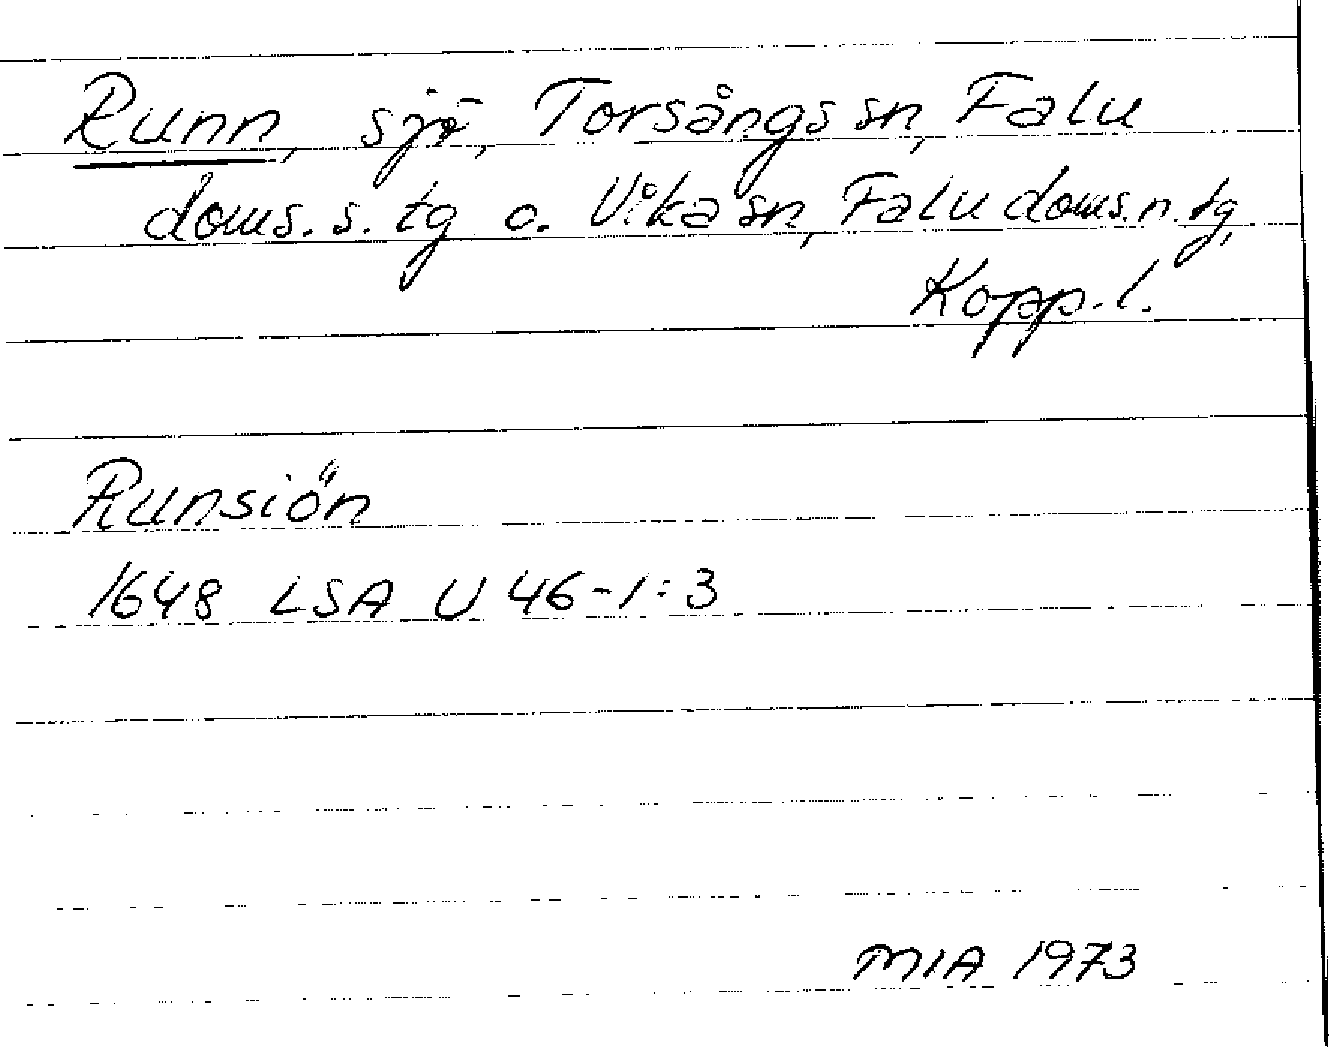 Runn, sjö, Torsångs sn, Falu
doms. s. tg o. Vika sn, Falu doms. n. tg,
Kopp. l.
Runsiön
1648 LSA U 46-1:3
MIA 1973